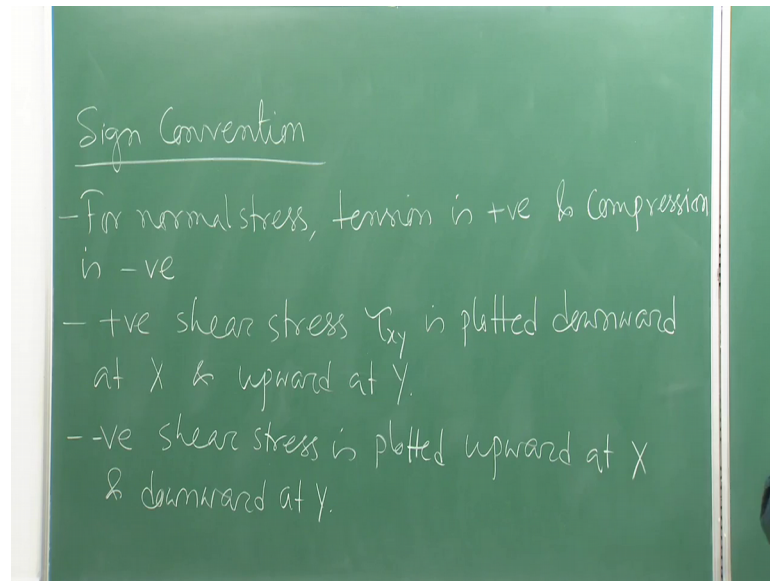 Sign Convention
- For normal stress, tension is +ve & compression
is -ve
- +ve shear stress τxy is plotted downward
at X & upward at Y.
- -ve shear stress is plotted upward at X
& downward at Y.